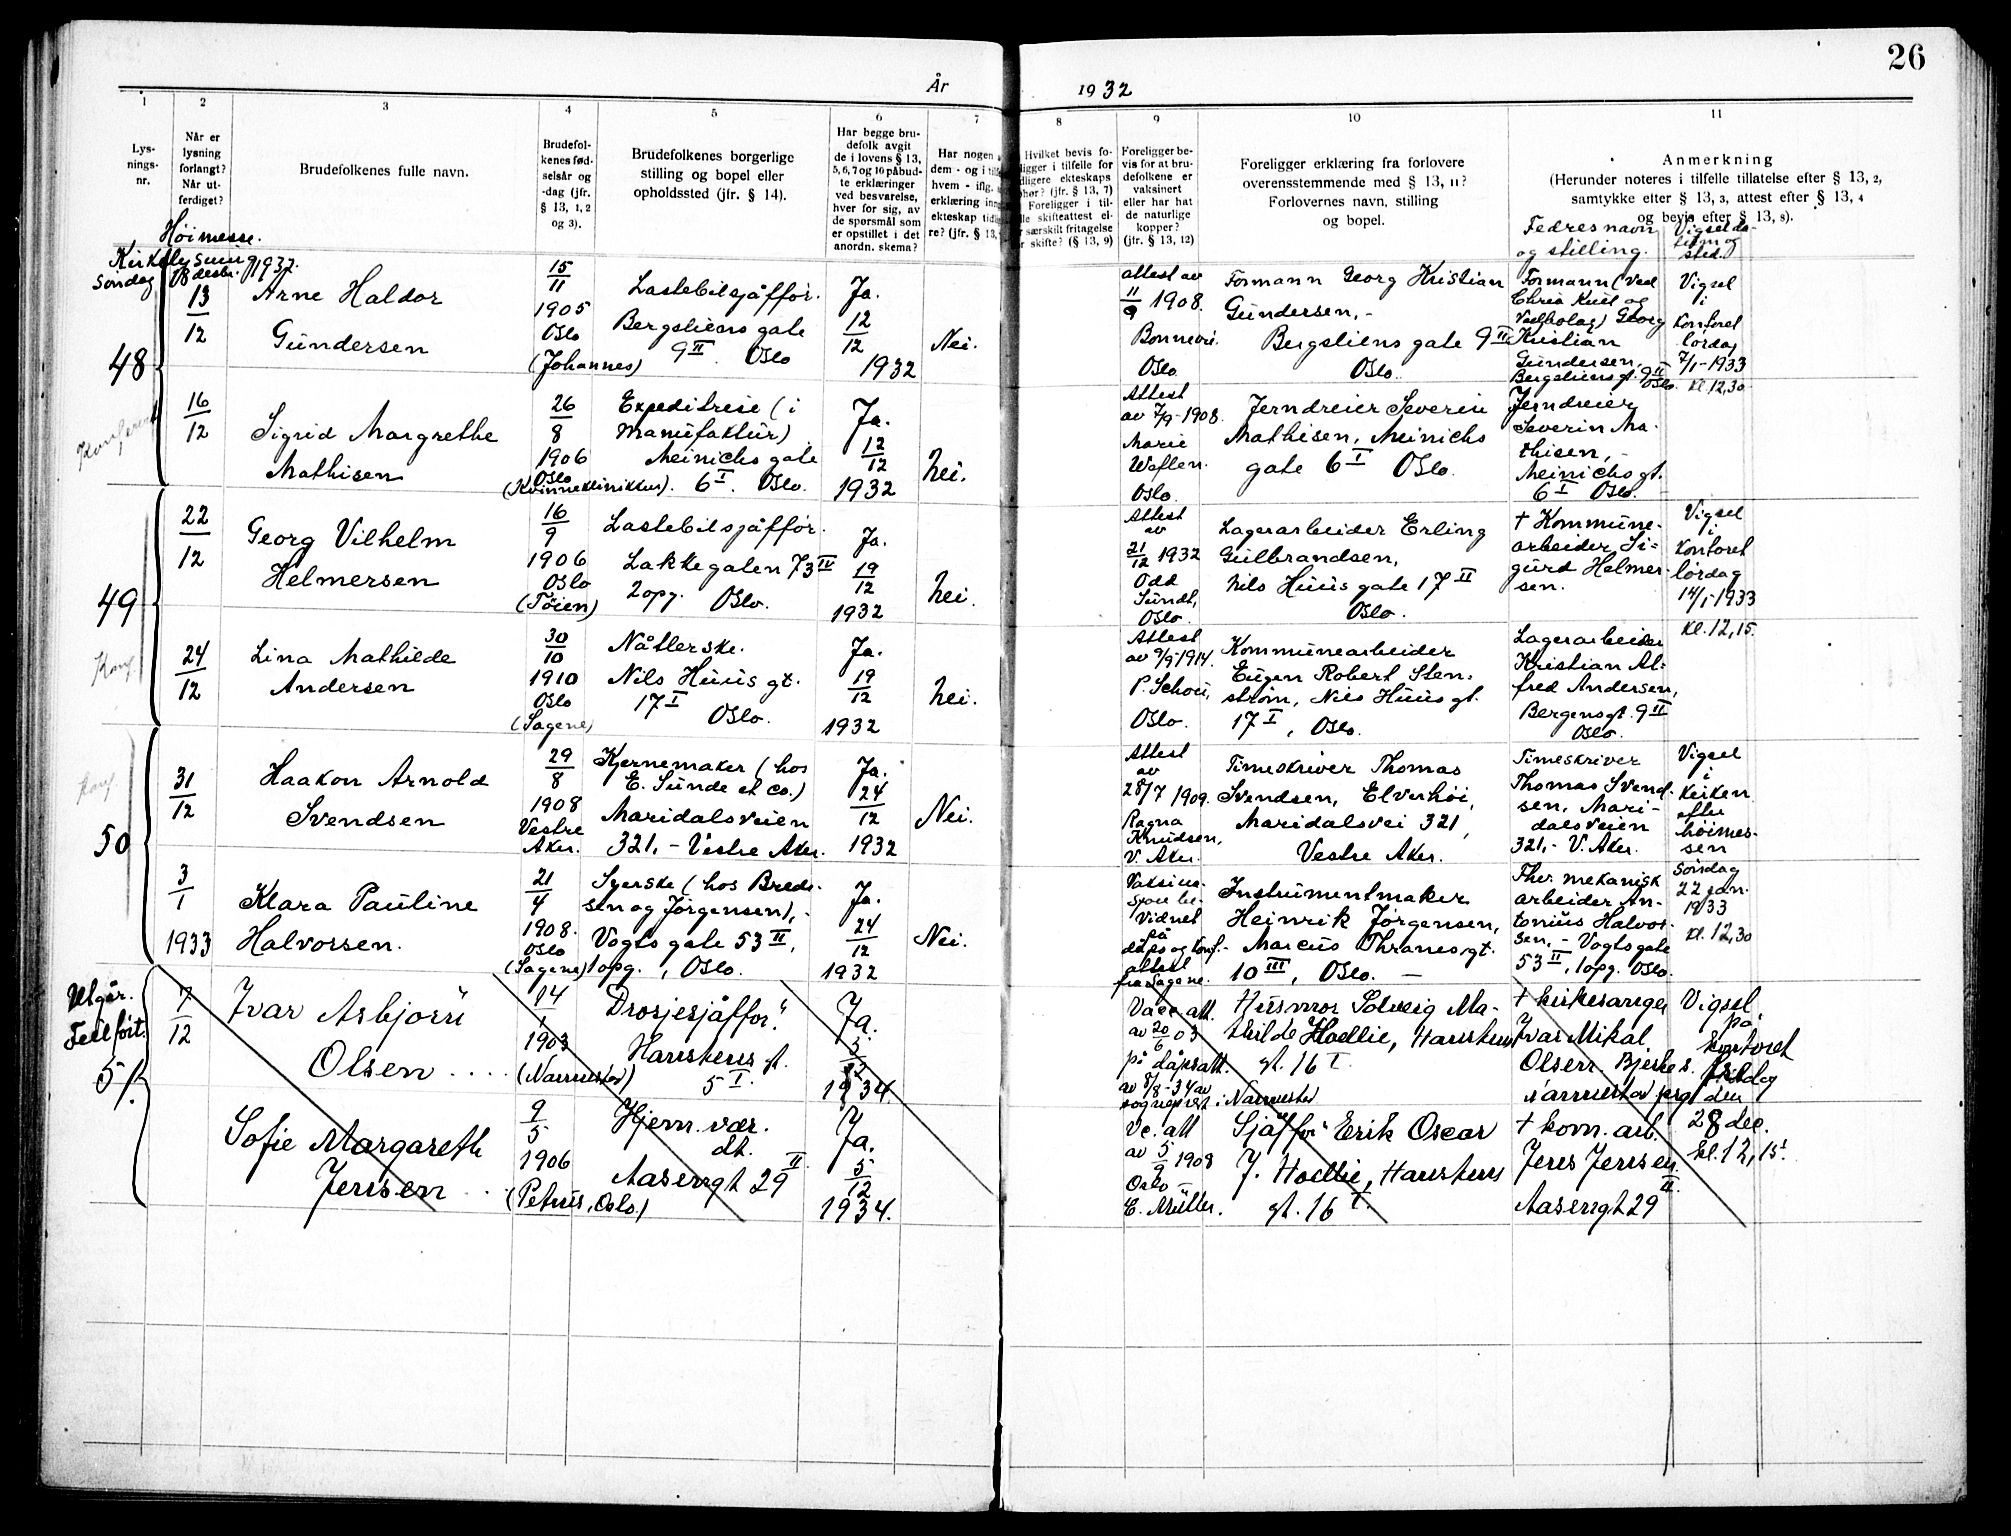 26
År 1932
1 2 3 4 5 6 7 8 9 10 11
Lys-
nings-
nr.
Når er
lysning
forlangt?
Når ut-
ferdiget?
Brudefolkenes fulle navn.
Brudefol-
kenes fød-
selsår og
-dag (jfr.
§ 13, 1, 2
og 3).
Brudefolkenes borgerlige
stilling og bopel eller
opholdssted (jfr. § 14).
Har begge bru-
defolk avgit
de i lovens § 13,
5, 6, 7 og 10 påbud-
te erklæringer
ved besvarelse,
hver for sig, av
de spørsmål som
er opstillet i det
anordn. skema?
Har nogen
dem - og i
hvem - iflg.
erklæring
ekteskap
re? (jfr. § 13,
Hvilket bevis fo-
ligger i tilfelle for
dligere ekteskaps
hør? (jfr. § 13, 7)
Foreligger i til-
lle skifteattest el-
r særskilt fritagelse
r skifte? (§ 13, 9)
Foreligger be-
vis for at bru-
defolkene er
vaksinert
eller har hat
de naturlige
kopper?
(jfr. § 13, 12)
Foreligger erklæring fra forlovere
overensstemmende med § 13, 11?
Forlovernes navn, stilling
og bopel.
Anmerkning
(Herunder noteres i tilfelle tillatelse efter § 13, 2,
samtykke efter § 13, 3, attest efter § 13, 4
og bevis efter § 13, 8).
Fedres navn
og stilling.
Vigselda-
tum og
sted.
Høimesse.
Kirkelysning
søndag 18 desbr. 1932.
48
13/12
Arne Haldor
Gundersen
15/11
1905
Oslo
(Johannes)
Lastebilsjåffør.
Bergsliens gate
9 II. Oslo
Ja.
12/12
1932
Nei.
Attest av
11/9 1908.
Oslo.
Formann Georg Kristian
Gundersen,-
Bergsliens gate 9 II
Oslo.
Formann (ved
Georg
Kristian
Gundersen,
Bergsliensgt. 9 II
Oslo.
Vigsel
i
kontoret
lørdag
7/1-1933
kl. 12,30
16/12
Sigrid Margrethe
Mathisen
26/8
1906
Oslo
(Kvinneklinikken).
Expeditrise (i
manufaktur)
Meinichs gate
6 I. Oslo.
Ja.
12/12
1932
Nei.
Attest
av 7/9-1908.
Marie
Oslo.
Jerndreier Severin
Mathisen, Meinichs
gate 6 I Oslo.
Jerndreier
Severin Ma-
thisen,-
Meinichs gt.
6 I Oslo.
49
22/12
Georg Vilhelm
Helmersen
16/9
1906
Oslo
(Tøien)
Lastebilsjåffør.
Lakkegaten 73 IV
2 opg. Oslo.
Ja.
19/12
1932
Nei.
Attest
av
21/12 1932
Odd
Sundt,
Oslo.
Lagerarbeider Erling
Gulbrandsen,
Nils Huus gate 17 II
Oslo.
+ Kommune-
arbeider Si-
gurd Helmer-
sen.
Vigsel
i
kontoret
lørdag
14/1 1933
kl. 12,15.
24/12
Lina Mathilde
Andersen
30/10
1910
Oslo
(Sagene)
Nåtlerske.
Nils Huus gt.
17 I
Oslo.
Ja.
19/12
1932
Nei.
Attest
av 9/9-1914.
P. Schou,
Oslo.
Kommunearbeider
Eugen Robert Sten-
strøm, Nils Huus gt.
17 I, Oslo.
Lagerarbeider
Kristian Al-
fred Andersen,
Bergensgt. 9 II
Oslo.
50
31/12
Haakon Arnold
Svendsen
29/8
1908
Vestre
Aker.
Kjernemaker (hos
E. Sunde et co.)
Maridalsveien
321.- Vestre Aker.
Ja.
24/12
1932
Nei.
Attest
av
28/7 1909.
Ragna
Knudsen,
V. Aker.
Timeskriver Thomas
Svendsen, Elverhøi,
Maridalsvei 321,
Vestre Aker.
Timeskriver
Thomas Svend-
sen, Mari-
dalsveien
321,- V. Aker.
Vigsel
i
kirken
efter
høimes-
sen
søndag
22 jan.
1933
kl. 12,30
3/1
1933
Klara Pauline
Halvorssen.
21/4
1908.
Oslo
(Sagene)
Syerske (hos Bred-
sen og Jørgensen),-
Vogts gate 53 II,
1 opg., Oslo.
Ja.
24/12
1932
Nei.
Vidnet
på
dåps og konf.-
attest
fra Sagene.
Instrumentmaker
Heinrik Jørgensen,
Marcus Thranes gt.
10 III, Oslo. —
Fhv. mekanisk
arbeider An-
tonius Halvor-
sen,- Vogts gate
53 II, 1 opg. Oslo.
Utgår.
Feil ført.
51.
7/12
Ivar Asbjørn
Olsen....
14/1
1903
(Nannestad)
Drosjesjåffør.
Hausteens gt.
5 I.
Ja.
5/12
1934.
Vacc. att.
av 20/6 03
på dåpsatt.
av 8/8-34 av
sogneprest i Nannestad
Husmor Solveig Ma-
thilde Hoellie, Hausteens
gt. 16 I
+ kirkesanger
Ivar Mikal
Olsen Bjerke s.
Nannestad prgd
Vigsel
på
kontoret
fredag
den
28 dec.
kl. 12,15.
Sofie Margareth
Jenssen..
9/5
1906
(Petrus, Oslo.)
Hjem. vær.
dt.
Aasengt 29 II
Ja.
5/12
1934.
Vc. att
av 5/9 1908
Oslo —
E. Müller.
Sjåffør Erik Oscar
J. Hoellie, Hausteens
gt. 16 I.
+ kom. arb.
Jens Jenssen
Aasengt 29 II.